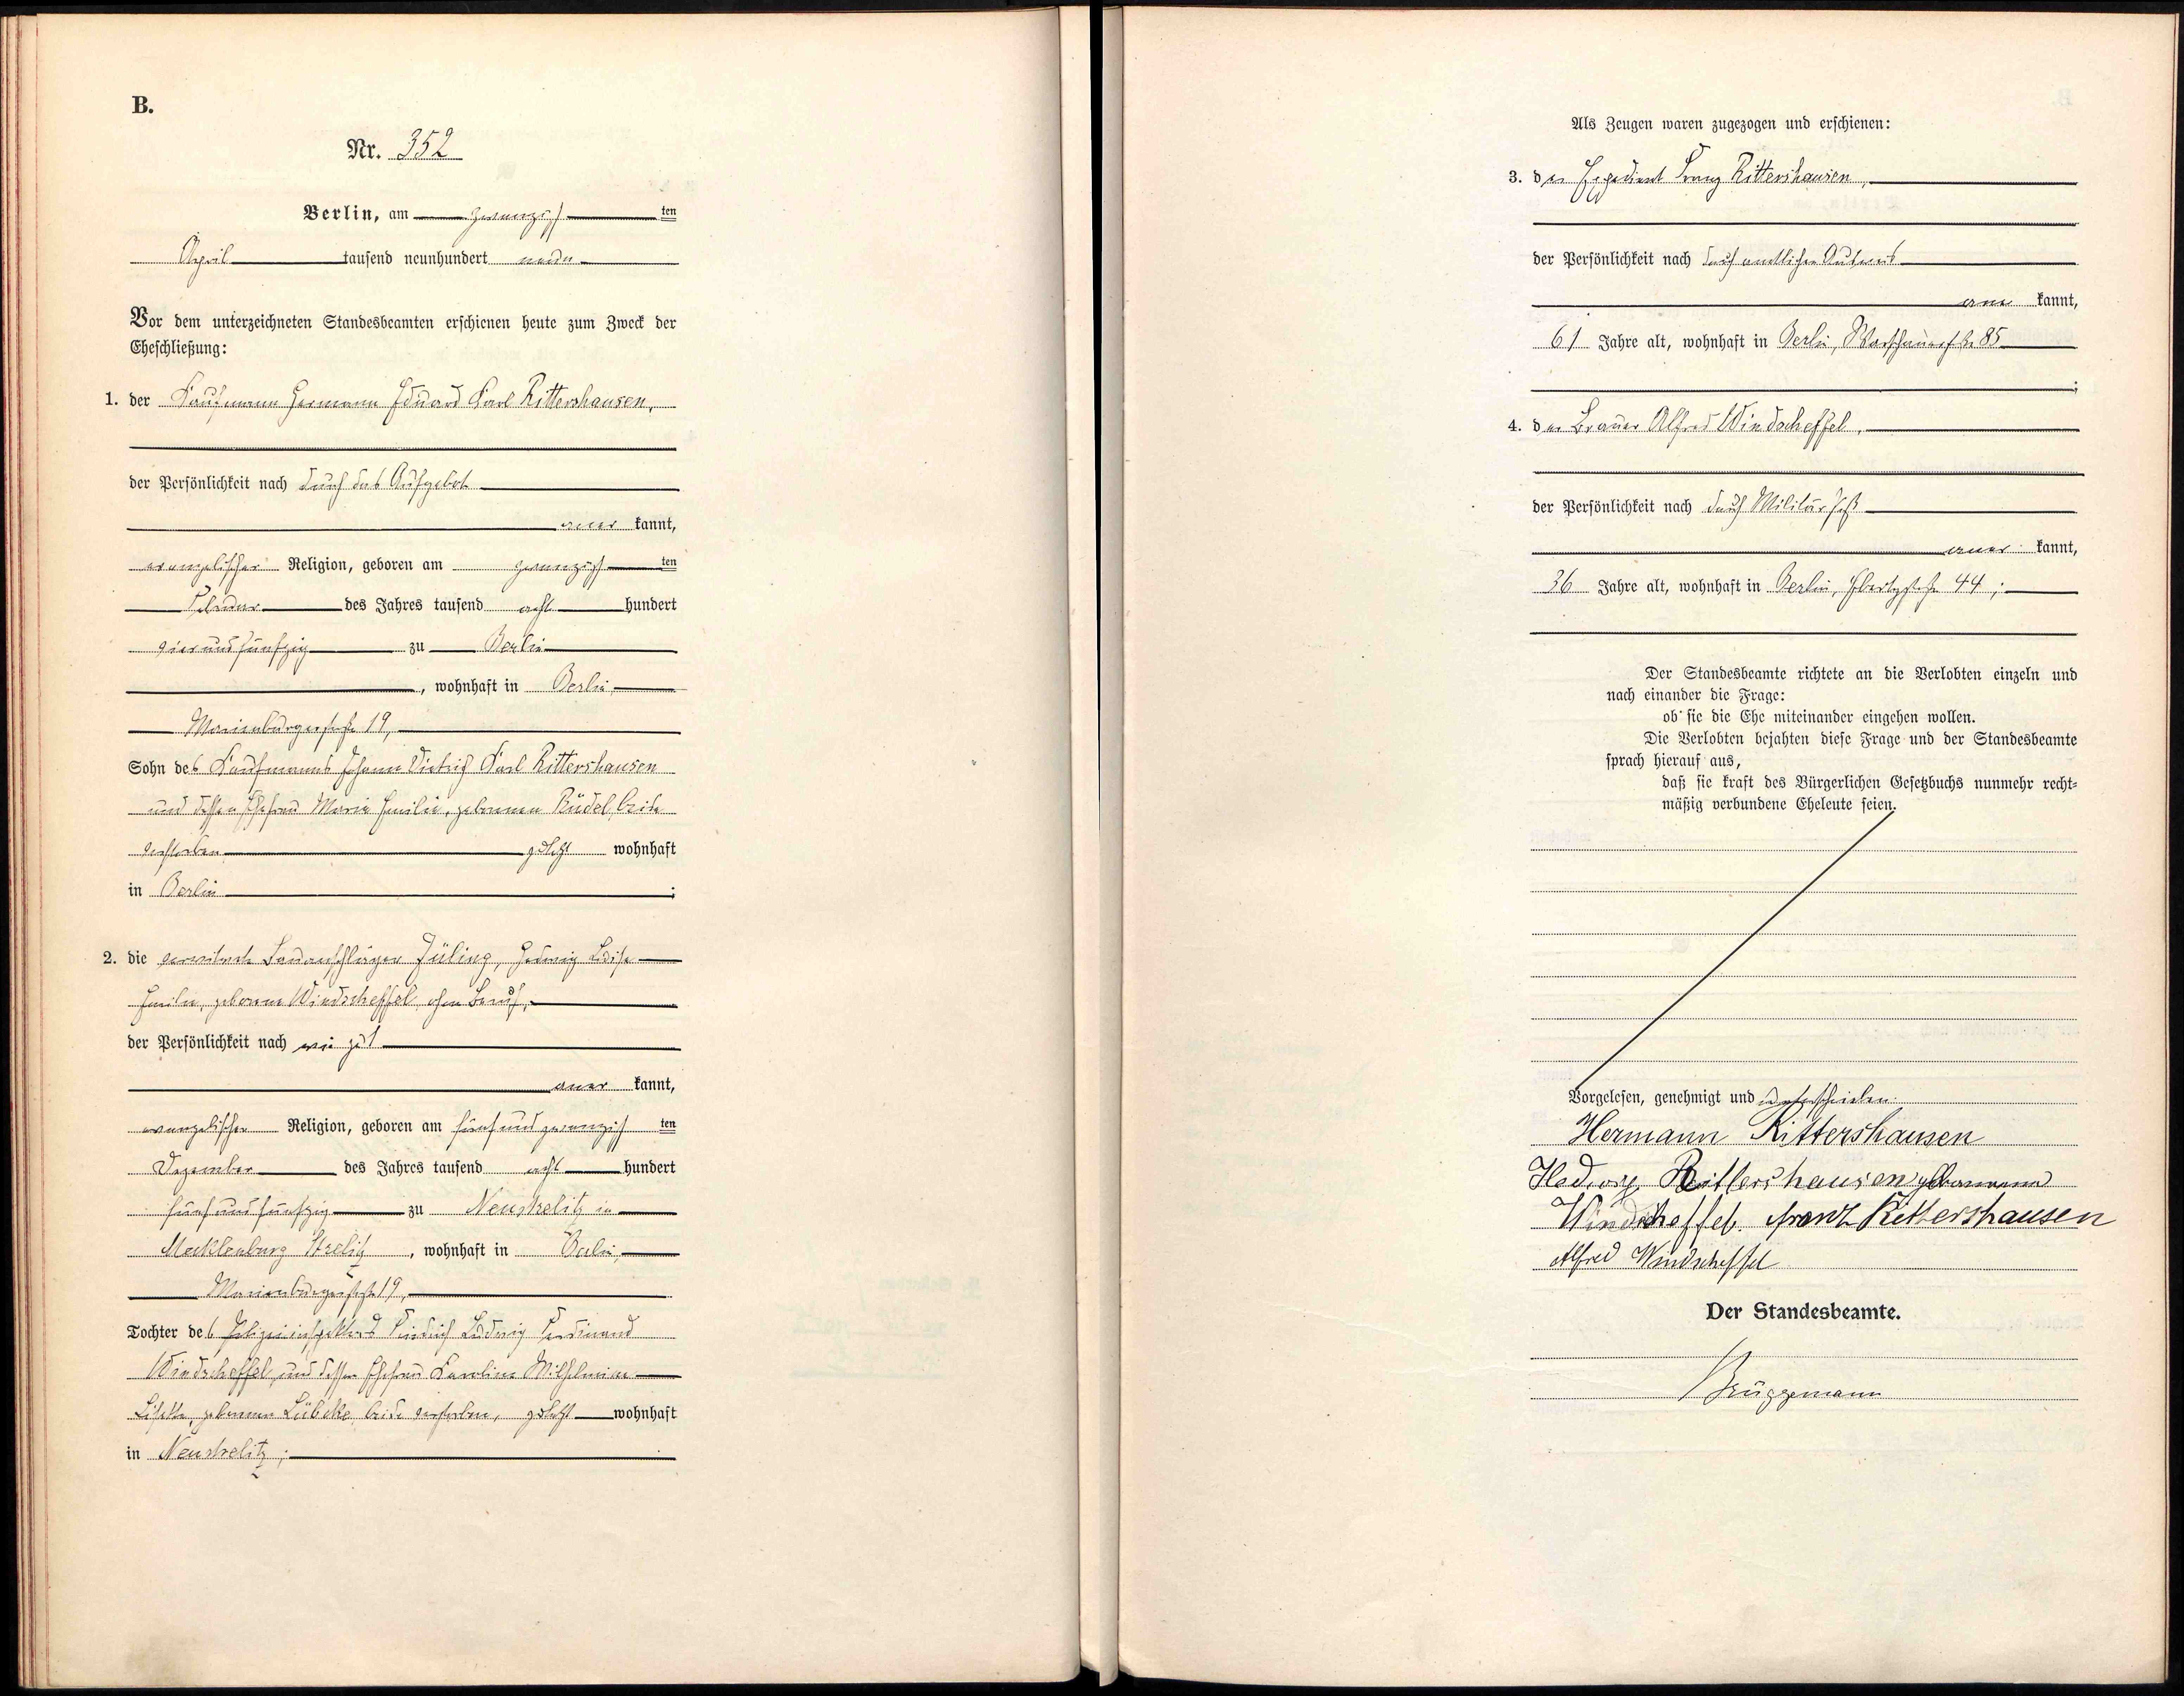 B.
Nr. 352
Berlin, am zwanzigsten
April tausend neunhundert
Vor dem unterzeichneten Standesbeamten erschienen heute zum Zweck der
Eheschließung:
1. der Kaufmann Hermann Eduard Karl Rittershausen,
der Persönlichkeit nach durch das Aufgebot
aner kannt,
evangelischer Religion, geboren am zwanzigsten
Februar des Jahres tausend acht hundert
vierundfünfzig zu Berlin
, wohnhaft in Berlin,
Marienburgerstraße 19,
Sohn des Kaufmanns Johann Dietrich Karl Rittershausen
und dessen Ehefrau Marie Emilie, geborenen Rüdel, beide
verstorben zuletzt wohnhaft
in Berlin ;
2. die verwitwete Jüling, Hedwig Luise
Emilie, geborene Windscheffel, ohne Beruf,
der Persönlichkeit nach wie zu 1
aner kannt,
evangelischer Religion, geboren am fünfundzwanzigsten
Dezember des Jahres tausend acht hundert
fünfundfünfzig zu Neustrelitz in
Mecklenburg Strelitz, wohnhaft in Berlin,
Marienburgerstraße 19,
Tochter des Polizeiinspektors Friedrich Ludwig Ferdinand
Windscheffel, und dessen Ehefrau Karoline Wilhelmine
Lisette, geborenen Lübcke, beide verstorben, zuletzt wohnhaft
in Neustrelitz;
Als Zeugen waren zugezogen und erschienen:
3. der Expedient Franz Rittershausen,
der Persönlichkeit nach durch amtlichen Ausweis
aner kannt,
61 Jahre alt, wohnhaft in Berlin, Warschauerstraße 85
;
4. der Brauer Alfred Windscheffel,
der Persönlichkeit nach durch Militärpaß
aner kannt,
36 Jahre alt, wohnhaft in Berlin, Ebertystraße 44;
Der Standesbeamte richtete an die Verlobten einzeln und
nach einander die Frage:
ob sie die Ehe miteinander eingehen wollen.
Die Verlobten bejahten diese Frage und der Standesbeamte
sprach hierauf aus,
daß sie kraft des Bürgerlichen Gesetzbuchs nunmehr recht-
mäßig verbundene Eheleute seien.
Vorgelesen, genehmigt und unterschrieben:
Hermann Rittershausen
Hedwig Rittershausen geborene
Windscheffel. Franz Rittershausen
Alfred Windscheffel
Der Standesbeamte.
Brüggemann